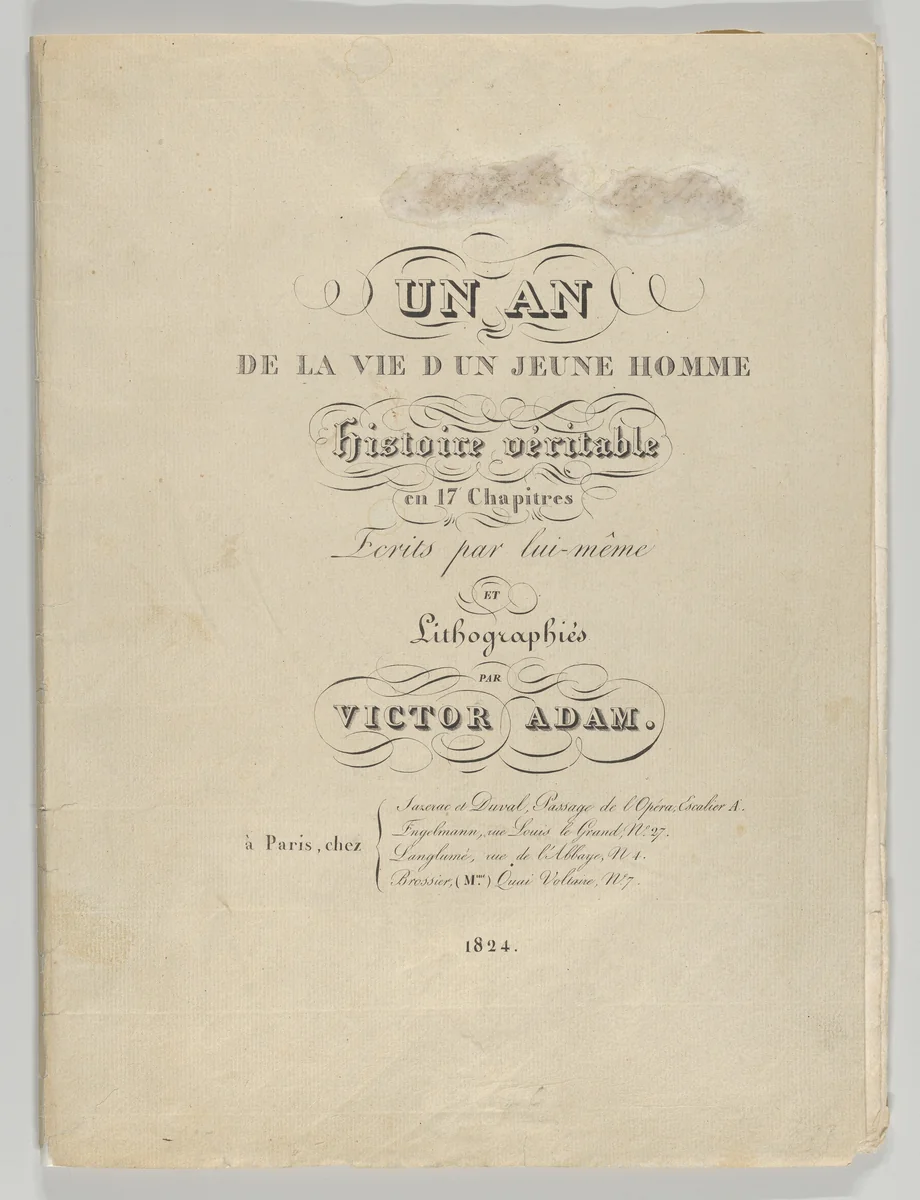 UN AN
DE LA VIE D'UN JEUNE HOMME
Histoire véritable
en 17 Chapitres
Ecrits par lui-même
ET
Lithographiés
PAR
VICTOR ADAM.
à Paris, chez
Sazerac et Duval, Passage de l'Opéra, Escalier A.
Engelmann, rue Louis le Grand, No. 27.
Langlumé, rue de l'Abbaye, No 4.
Brossier, (Mme.) Quai Voltaire, No 7.
1824.